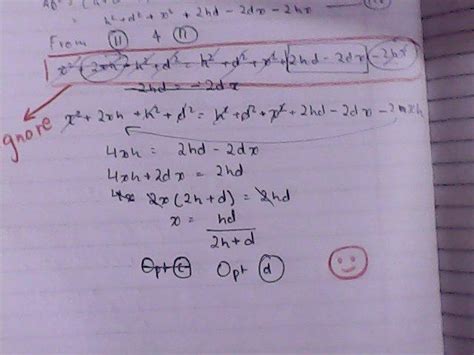 = h² + d² + x² + 2hd - 2dx - 2hx
From (II) & (I)
x² + 2xh + h² + d² = h² + d² + x² + 2hd - 2dx - 2hx
-2hd = -2dx
Ignore
x² + 2xh + h² + d² = h² + d² + x² + 2hd - 2dx - 2xh
4xh = 2hd - 2dx
4xh + 2dx = 2hd
2x(2h+d) = 2hd
x = hd
2h+d
Opt (c) Opt (d)